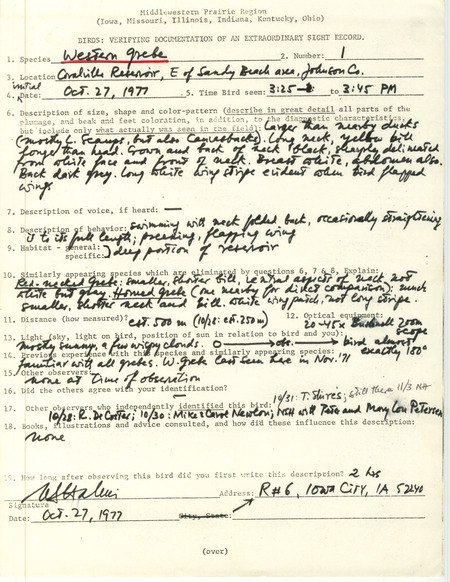 Middlewestern Prairie Region
(Iowa, Missouri, Illinois, Indiana, Kentucky, Ohio)
BIRDS: VERIFYING DOCUMENTATION OF AN EXTRAORDINARY SIGHT RECORD.
1. Species Western grebe 2. Number: 1
3. Location Coralville Reservoir, E of Sandy Beach area, Johnson Co.
initial
4. Date: Oct. 27, 1977 5. Time Bird seen: 3:25 to 3:45 PM
6. Description of size, shape and color-pattern (describe in great detail all parts of the
plumage, and beak and feet coloration, in addition, to the diagnostic characteristics,
but include only what actually was seen in the field): larger than nearby ducks
(mostly L. Scaups, but also Canvasbacks). Long neck, yellow bill
longer than head. Crown and back of neck black, sharply delineated
from white face and front of neck. Breast white, abdomen also.
Back dark grey. Long white wing stripe evident when bird flapped
wings
7. Description of voice, if heard: —
8. Description of behavior: swimming with neck folded back, occasionally straightening
it to its full length; preening, flapping wing
9. Habitat - general:
specific: } deep portion of reservoir
10. Similarly appearing species which are eliminated by questions 6, 7 & 8, Explain:
Red-necked Grebe: smaller, shorter bill, ventral aspects of neck not
white but gray. Horned Grebe (one nearby for direct comparison): much
smaller, shorter neck and bill. White wing patch, not long stripe.
11. Distance (how measured)? est. 500 m (10/28: est. 250 m) 12. Optical equipment:
20-45x Bushnell zoom
scope
13. Light (sky, light on bird, position of sun in relation to bird and you):
mostly sunny, a few wispy clouds. O → obs. → bird almost
exactly 180°
14. Previous experience with this species and similarly appearing species:
familiar with all grebes. W. grebe last seen here in Nov. '71
15. Other observers:
none at time of observation
16. Did the others agree with your identification?
17. Other observers who independently identified this bird: 10/31: T. Shires; still there 11/3 NH
10/28: R. DeCoster; 10/30: Mike & Carol Newlon; NSH with Pete and Mary Lou Petersen
18. Books, illustrations and advice consulted, and how did these influence this description:
none
19. How long after observing this bird did you first write this description? 2 hrs
Signature Address: R#6, Iowa City, IA 52240
Date: Oct. 27, 1977 City, State:
(over)